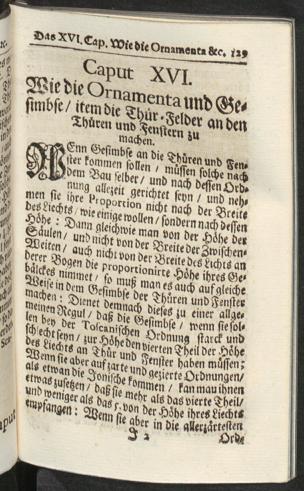 Das XVI. Cap. Wie die Ornamenta &c. 129
Caput XVI.
Wie die Ornamenta und Ge-
simbse / item die Thür-Felder an den
Thüren und Fenstern zu
machen.
Wenn Gesimbse an die Thüren und Fen-
ster kommen sollen / müssen solche nach
dem Bau selber / und nach dessen Ord-
nung allezeit gerichtet seyn / und neh-
men sie ihre Proportion nicht nach der Breite
des Liechts / wie einige wollen / sondern nach dessen
Höhe: Dann gleichwie man von der Höhe der
Säulen / und nicht von der Breite der Zwischen-
Weiten / auch nicht von der Breite des Lichts an
derer Bogen die proportionirte Höhe ihres Ge-
bälckes nimmet / so muß man es auch auf gleiche
Weise in dem Gesimbse der Thüren und Fenster
machen: Dienet demnach dieses zu einer allge-
meinen Regul / daß die Gesimbse / wenn sie sol-
len bey der Toscanischen Ordnung starck und
schlecht seyn / zur Höhe den vierten Theil der Höhe
des Liechts an Thür und Fenster haben müssen;
Wenn sie aber auf zarte und gezierte Ordnungen /
als etwan die Jonische kommen / kan man ihnen
etwas zusetzen / daß sie mehr als das vierte Theil /
und weniger als das 5. von der Höhe ihres Liechts
empfangen: Wenn sie aber in die allerzärtesten
J 2 Ord-